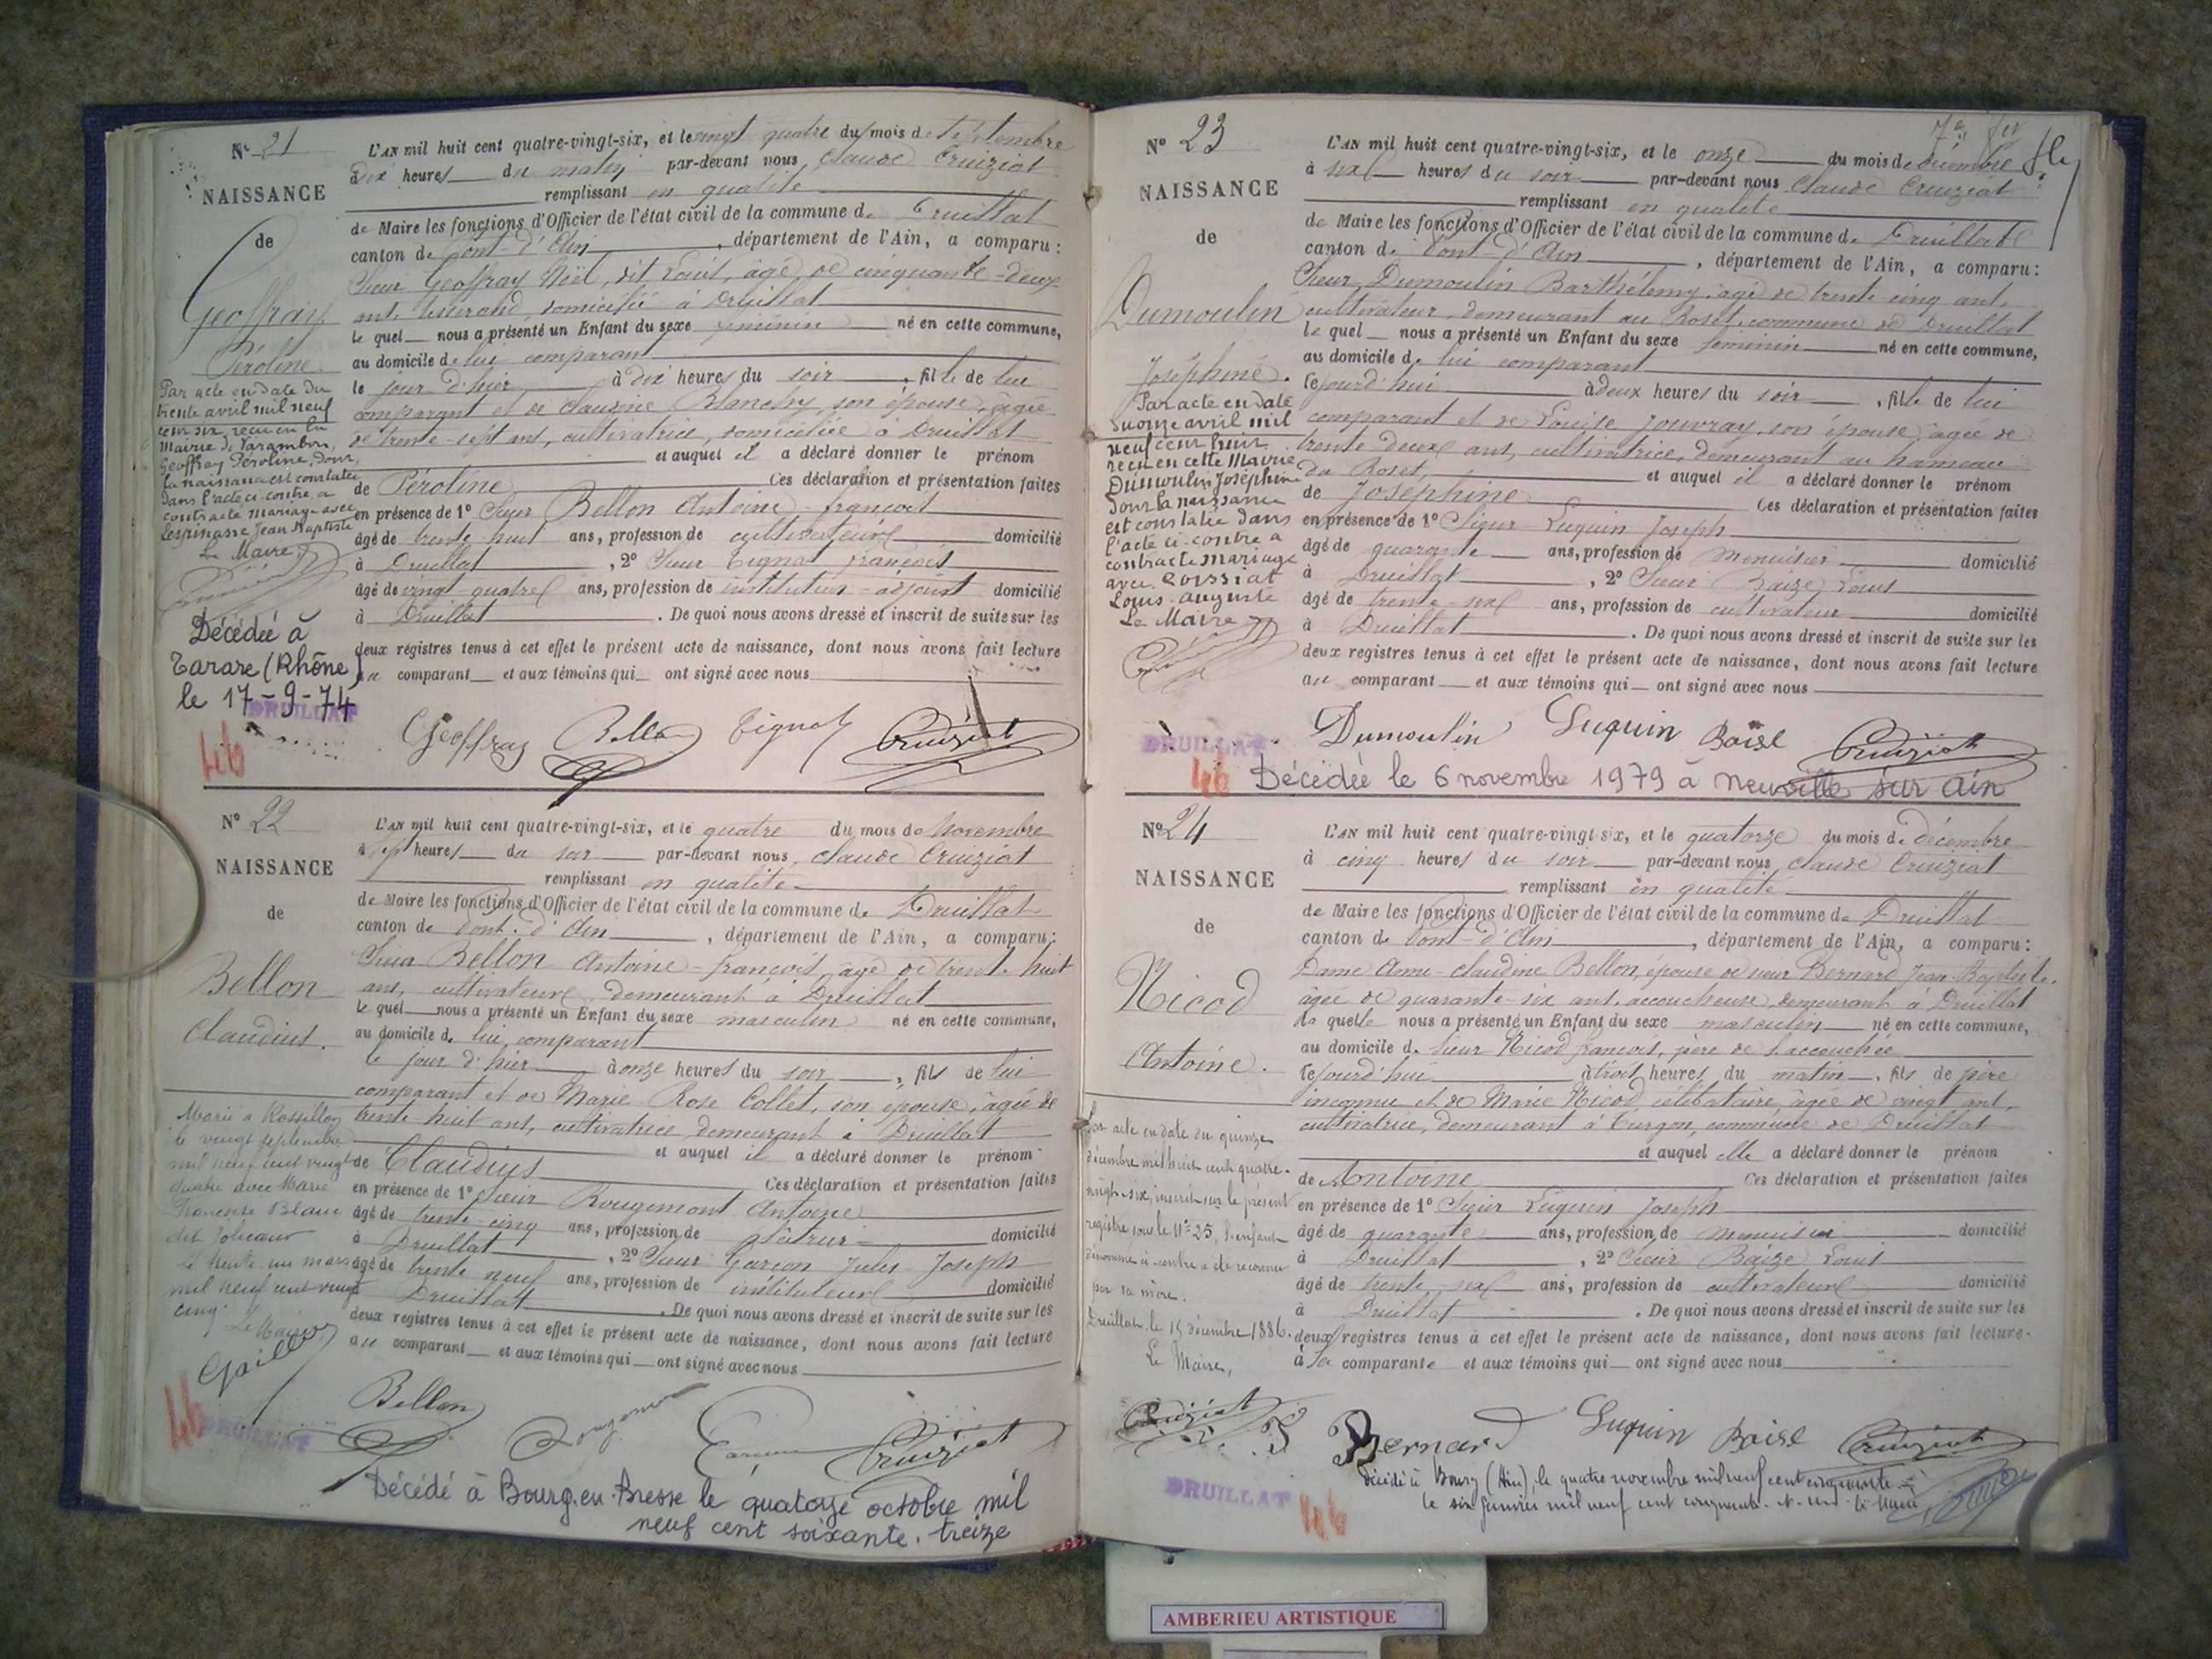 N° 21
NAISSANCE
de
Geoffray
Péroline
Par acte en date du
trente avril mil neuf
cent six, reçu en la
Mairie de Varambon,
Geoffray Péroline, dont
la naissance est constatée
dans l'acte ci-contre a
contracté mariage avec
Lespinasse Jean Baptiste
Le Maire
Décédée à
Tarare (Rhône)
le 17-9-74
DRUILLAT
46
L'AN mil huit cent quatre-vingt-six, et le vingt quatre du mois de septembre
à dix heures du matin par-devant nous Claude Cruiziat
remplissant en qualité
de Maire les fonctions d'Officier de l'état civil de la commune de Druillat
canton de Pont-d'Ain, département de l'Ain, a comparu:
Sieur Geoffray Noël, dit Louis, âgé de cinquante-deux
ans, tisserand, domicilié à Druillat
le quel nous a présenté un Enfant du sexe féminin né en cette commune,
au domicile de lui comparant
le jour d'hier à dix heures du soir, fille de lui
comparant et de Claudine Blanchy, son épouse, âgée
de trente-sept ans, cultivatrice, domiciliée à Druillat
et auquel il a déclaré donner le prénom
de Péroline Ces déclaration et présentation faites
en présence de 1° Sieur Bellon Antoine-françois
âgé de trente huit ans, profession de cultivateur domicilié
à Druillat, 2° Sieur Tignat françois
âgé de vingt-quatre ans, profession de instituteur-adjoint domicilié
à Druillat. De quoi nous avons dressé et inscrit de suite sur les
deux registres tenus à cet effet le présent acte de naissance, dont nous avons fait lecture
au comparant et aux témoins qui ont signé avec nous
Geoffray Bellon Tignat Cruiziat
N° 22
NAISSANCE
de
Bellon
Claudius.
Marié à Rossillon
le vingt septembre
mil neuf cent vingt
quatre avec Marie
Françoise Blanc
dit Jolicœur
le trente un mars
mil neuf cent vingt
cinq.
Le Maire
DRUILLAT
46
L'AN mil huit cent quatre-vingt-six, et le quatre du mois de Novembre
à sept heures du soir par-devant nous Claude Cruiziat
remplissant en qualité
de Maire les fonctions d'Officier de l'état civil de la commune de Druillat
canton de Pont-d'Ain, département de l'Ain, a comparu:
Sieur Bellon Antoine-françois, âgé de trente huit
ans, cultivateur, demeurant à Druillat
le quel nous a présenté un Enfant du sexe masculin né en cette commune,
au domicile de lui comparant
le jour d'hier à onze heures du soir, fils de lui
comparant et de Marie Rose Collet, son épouse, âgée de
trente huit ans, cultivatrice, demeurant à Druillat
et auquel il a déclaré donner le prénom
de Claudius Ces déclaration et présentation faites
en présence de 1° Sieur Rougemont Antoine
âgé de trente-cinq ans, profession de plâtrier domicilié
à Druillat, 2° Sieur Garcon Jules Joseph
âgé de trente neuf ans, profession de instituteur domicilié
Druillat. De quoi nous avons dressé et inscrit de suite sur les
deux registres tenus à cet effet le présent acte de naissance, dont nous avons fait lecture
au comparant et aux témoins qui ont signé avec nous
Bellon Cruiziat
Décédé à Bourg-en-Bresse le quatorze octobre mil
neuf cent soixante-treize
N° 23
NAISSANCE
de
Dumoulin
Joséphine.
Par acte en date
du onze avril mil
neuf cent huit
reçu en cette Mairie
Dumoulin Joséphine
dont la naissance
est constatée dans
l'acte ci-contre a
contracté mariage
avec Roissiat
Louis-Auguste
Le Maire
DRUILLAT
46
L'AN mil huit cent quatre-vingt-six, et le onze du mois de décembre
à six heures du soir par-devant nous Claude Cruiziat
remplissant en qualité
de Maire les fonctions d'Officier de l'état civil de la commune de Druillat
canton de Pont-d'Ain, département de l'Ain, a comparu:
Sieur Dumoulin Barthélemy, âgé de trente cinq ans,
cultivateur, demeurant au Roset, commune de Druillat
le quel nous a présenté un Enfant du sexe féminin né en cette commune,
au domicile de lui comparant
cejourd'hui à deux heures du soir, fille de lui
comparant et de Louise Jouvray, son épouse, âgée de
trente-deux ans, cultivatrice, demeurant au hameau
du Roset, et auquel il a déclaré donner le prénom
de Joséphine Ces déclaration et présentation faites
en présence de 1° Sieur Luquin Joseph
âgé de quarante ans, profession de menuisier domicilié
à Druillat, 2° Sieur Baize Louis
âgé de trente-six ans, profession de cultivateur domicilié
à Druillat. De quoi nous avons dressé et inscrit de suite sur les
deux registres tenus à cet effet le présent acte de naissance, dont nous avons fait lecture
au comparant et aux témoins qui ont signé avec nous
Dumoulin Luquin Baise Cruiziat
Décédée le 6 novembre 1979 à Neuville sur Ain
N° 24
NAISSANCE
de
Nicod
Antoine.
Par acte en date du quinze
décembre mil huit cent quatre-
vingt-six, inscrit sur le présent
registre sous le N° 25, l'enfant
dénommé ci-contre a été reconnu
par sa mère.
Druillat, le 15 décembre 1886.
Le Maire,
Cruiziat
DRUILLAT
46
L'AN mil huit cent quatre-vingt-six, et le quatorze du mois de décembre
à cinq heures du soir par-devant nous Claude Cruiziat
remplissant en qualité
de Maire les fonctions d'Officier de l'état civil de la commune de Druillat
canton de Pont-d'Ain, département de l'Ain, a comparu:
Dame Anne-Claudine Bellon, épouse de sieur Bernard Jean-Baptiste,
âgée de quarante-six ans, accoucheuse, demeurant à Druillat
la quelle nous a présenté un Enfant du sexe masculin né en cette commune,
au domicile de sieur Nicod françois, père de l'accouchée
cejourd'hui à trois heures du matin, fils de père
inconnu et de Marie Nicod, célibataire, âgée de vingt ans,
cultivatrice, demeurant à Turgon, commune de Druillat
et auquel elle a déclaré donner le prénom
de Antoine Ces déclaration et présentation faites
en présence de 1° Sieur Luquin Joseph
âgé de quarante ans, profession de menuisier domicilié
à Druillat, 2° Sieur Baize Louis
âgé de trente-six ans, profession de cultivateur domicilié
à Druillat. De quoi nous avons dressé et inscrit de suite sur les
deux registres tenus à cet effet le présent acte de naissance, dont nous avons fait lecture
à la comparante et aux témoins qui ont signé avec nous
Bernard Luquin Baise Cruiziat
Décédé à Bourg (Ain), le quatre novembre mil neuf cent cinquante
le six janvier mil neuf cent cinquante
AMBERIEU ARTISTIQUE